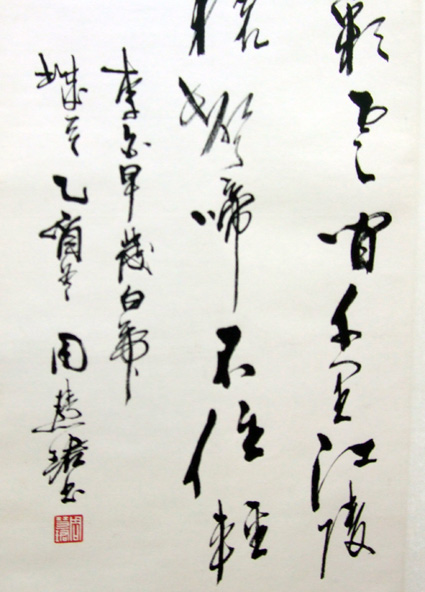 彩雲間千里江陵
猿聲啼不住輕
李白早發白帝
城 乙 周慧珺書